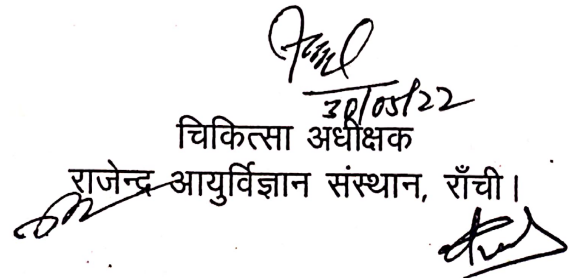 30/05/22
चिकित्सा अधीक्षक
राजेन्द्र आयुर्विज्ञान संस्थान, राँची।